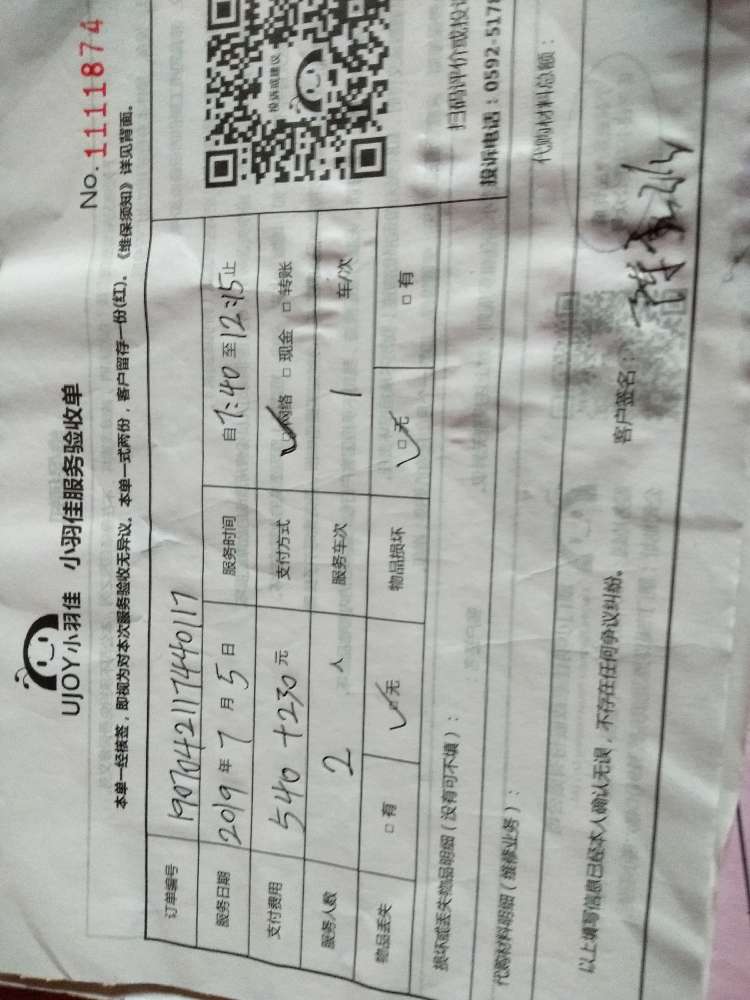 UJOY小羽佳 小羽佳服务验收单
No. 1111874
本单一经核签，即视为对本次服务验收无异议。本单一式两份，客户留存一份(红)。《维保须知》详见背面。
订单编号 1907042117440117
服务日期 2019 年 7 月 5 日 服务时间 自 7:40 至 12:15 止
支付费用 540+230 元 支付方式 ☑网络 □现金 □转账
服务人数 2 人 服务车次 1 车/次
物品丢失 □有 ☑无 物品损坏 ☑无 □有
投诉或建议
扫码评价或投
投诉电话：0592-517
损坏或丢失物品明细（没有可不填）：
代购材料明细（维修业务）：
代购材料总额：
以上填写信息已经本人确认无误，不存在任何争议纠纷。
客户签名：